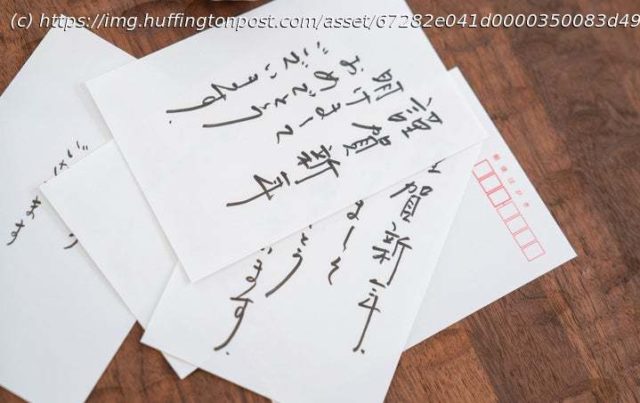 (c) https://img.huffingtonpost.com/asset/67282e041d0000350083d49
謹賀新年
明けまして
おめでとう
ございます。
賀新年.
まして
とう
います。
郵便はがき